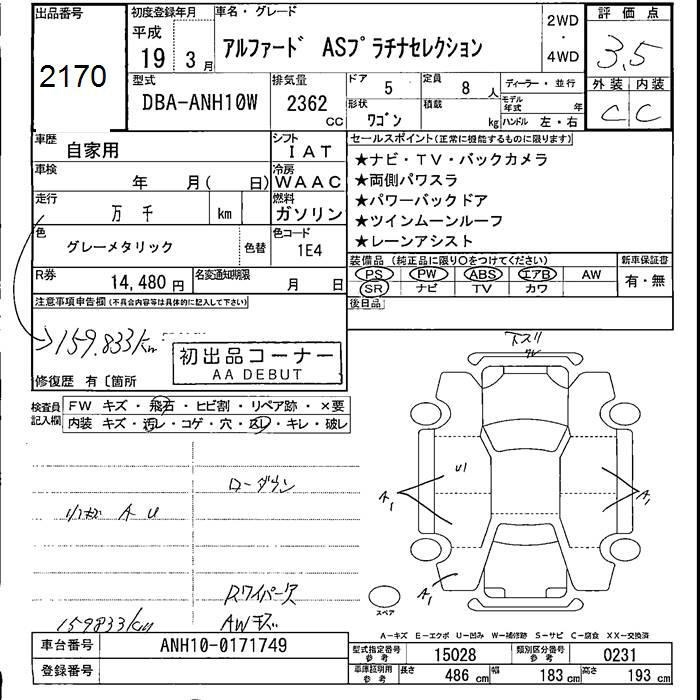 出品番号 初度登録年月 車名・グレード 評価点
2170
平成 19年 3月
アルファード ASプラチナセレクション
2WD ・ 4WD
3.5
型式 排気量 ドア 5 定員 8人 ディーラー・並行 外装 内装
DBA-ANH10W 2362 CC
形状 ワゴン 積載 kg モデル年式 年 ハンドル 左・右 C C
車歴 自家用 シフト IAT
セールスポイント(正常に機能するものに限ります)
★ナビ・TV・バックカメラ
★両側パワスラ
★パワーバックドア
★ツインムーンルーフ
★レーンアシスト
車検 年 月( 日) 冷房 WAAC
走行 万 千 km 燃料 ガソリン
色 グレーメタリック 色替 色コード 1E4
装備品(純正品に限り○をつけてください) 新車保証書
PS PW ABS エアB AW 有・無
SR ナビ TV カワ
R券 14,480円 名変通知期限 月 日
後日品
注意事項申告欄(不具合内容等は具体的に記入して下さい)
→159.833km
初出品コーナー
AA DEBUT
修復歴 有〔箇所
検査員記入欄 FW キズ・飛石・ヒビ割・リペア跡・×要
内装 キズ・汚レ・コゲ・穴・凹レ・キレ・破レ
下スリ
A1 U1 A1
A1
ローダウン
A U
Rワイパー欠
AWキズ
159833km
スペア
A-キズ E-エクボ U-凹み W-補修跡 S-サビ C-腐食 XX-交換済
車台番号 ANH10-0171749
登録番号
型式指定番号 参考 15028 類別区分番号 参考 0231
車庫証明用 参考 長さ 486cm 幅 183cm 高さ 193cm